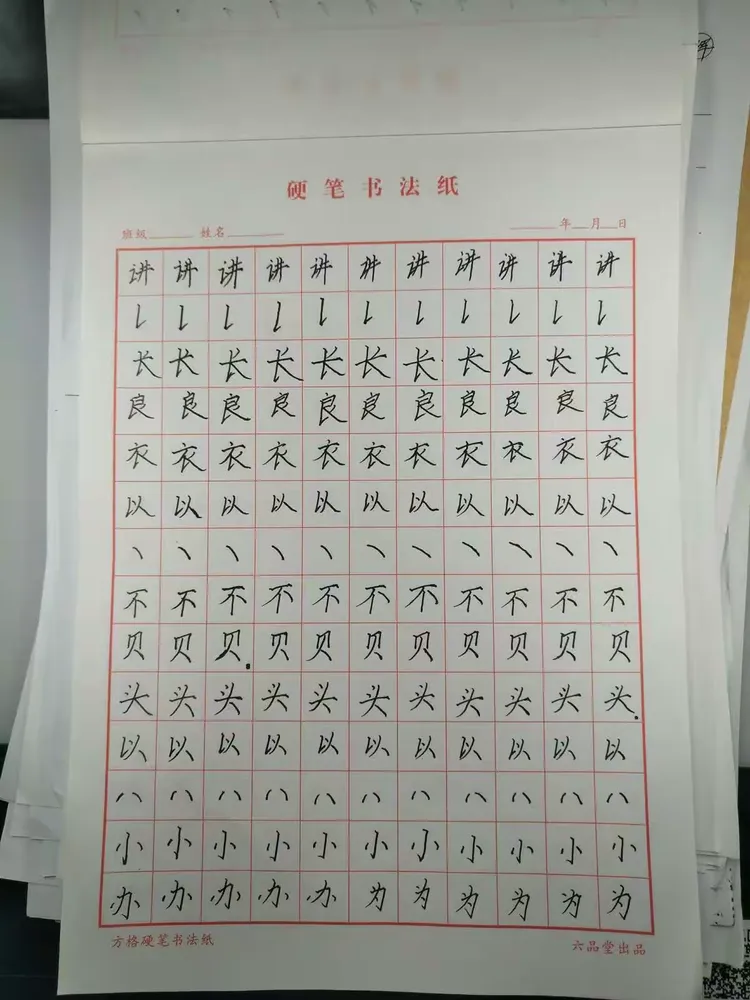 硬笔书法纸
班级 姓名 年 月 日
讲 讲 讲 讲 讲 讲 讲 讲 讲 讲 讲
长 长 长 长 长 长 长 长 长 长 长
良 良 良 良 良 良 良 良 良 良 良
衣 衣 衣 衣 衣 衣 衣 衣 衣 衣 衣
以 以 以 以 以 以 以 以 以 以 以
丶 丶 丶 丶 丶 丶 丶 丶 丶 丶 丶
不 不 不 不 不 不 不 不 不 不 不
贝 贝 贝 贝 贝 贝 贝 贝 贝 贝 贝
头 头 头 头 头 头 头 头 头 头 头
以 以 以 以 以 以 以 以 以 以 以
八 八 八 八 八 八 八 八 八 八 八
小 小 小 小 小 小 小 小 小 小 小
办 办 办 办 办 为 为 为 为 为 为
方格硬笔书法纸 六品堂出品